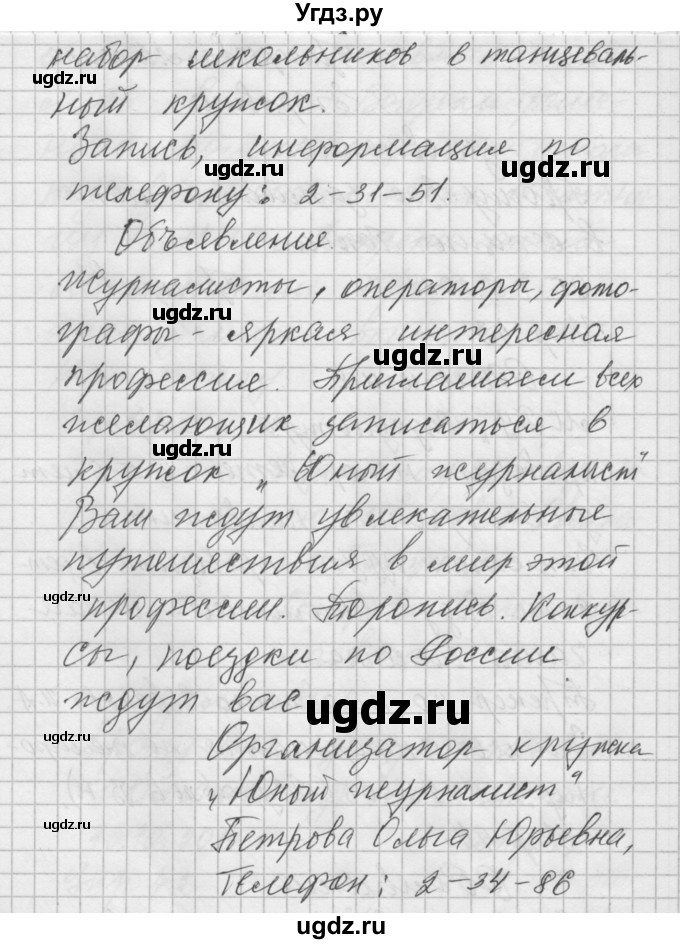 Угдз.ру
набор школьников в танцеваль-
ный кружок.
Запись, информация по
телефону: 2-31-51.
Объявление.
Журналисты, операторы, фото-
графы - яркая интересная
профессия. Приглашаем всех
желающих записаться в
кружок „Юный журналист"
Вам ждут увлекательные
путешествия в мир этой
профессии. Торопись. Конкур-
сы, поездки по России
ждут вас
Организатор кружка
„Юный журналист"
Петрова Ольга Юрьевна,
Телефон: 2-34-86
ugdz.ru
ugdz.ru
ugdz.ru
ugdz.ru
ugdz.ru
ugdz.ru
ugdz.ru
ugdz.ru
ugdz.ru
ugdz.ru
ugdz.ru
ugdz.ru
ugdz.ru